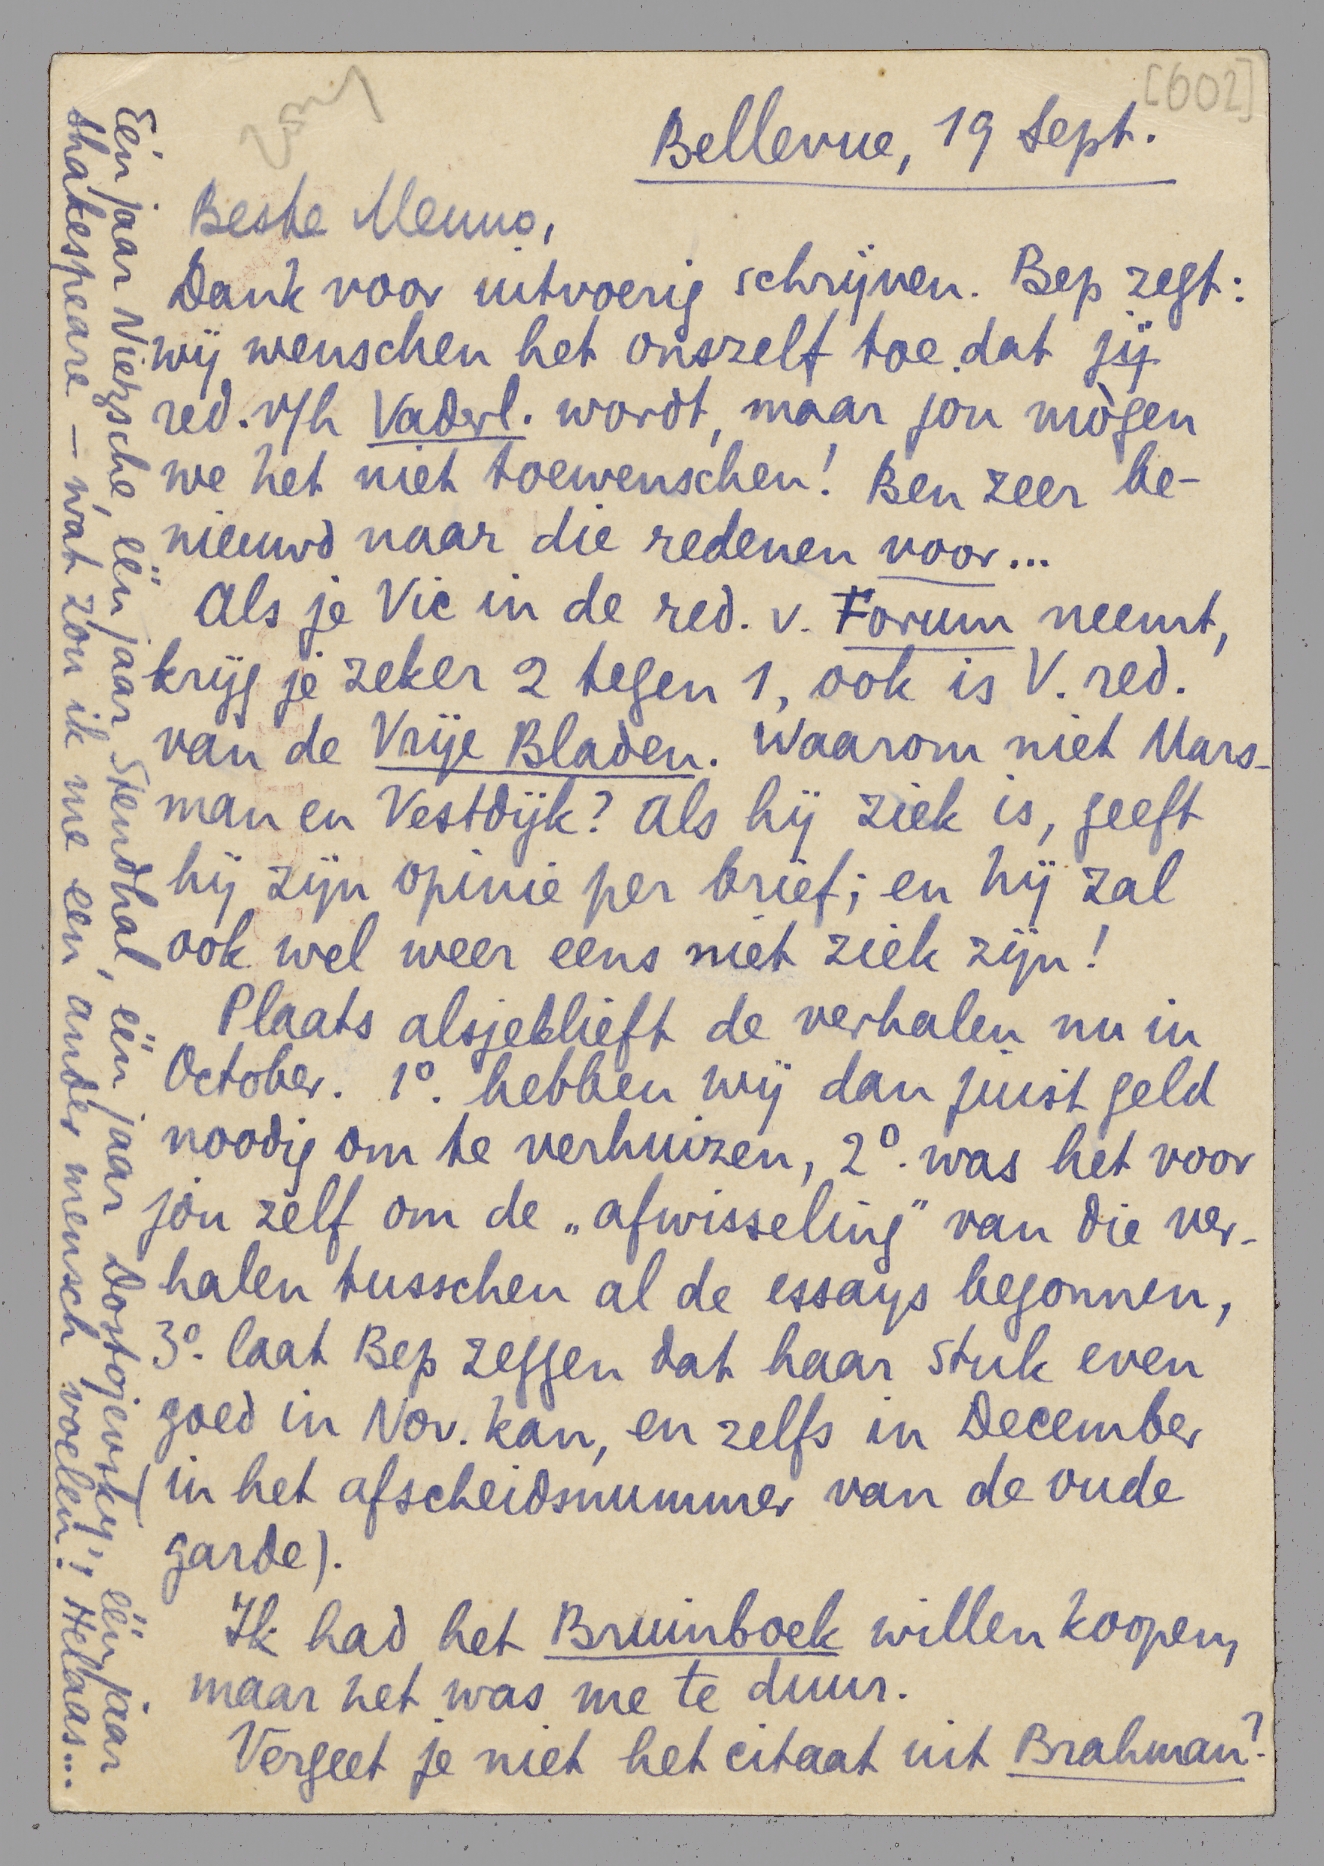 [602]
Bellevue, 19 Sept.
Beste Menno,
Dank voor uitvoerig schrijven. Bep zegt:
wij wenschen het onszelf toe dat jij
red. v/h Vaderl. wordt, maar jou mògen
we het niet toewenschen! Ben zeer be-
nieuwd naar die redenen voor...
Als je Vic in de red. v. Forum neemt,
krijg je zeker 2 tegen 1, ook is V. red.
van de Vrije Bladen. Waarom niet Mars-
man en Vestdijk? Als hij ziek is, geeft
hij zijn opinie per brief; en hij zal
ook wel weer eens niet ziek zijn!
Plaats alsjeblieft de verhalen nu in
October. 1º. hebben wij dan juist geld
noodig om te verhuizen, 2º. was het voor
jou zelf om de „afwisseling” van die ver-
halen tusschen al de essays begonnen,
3º. laat Bep zeggen dat haar stuk even
goed in Nov. kan, en zelfs in December
(in het afscheidsnummer van de oude
garde).
Ik had het Bruinboek willen koopen,
maar het was me te duur.
Vergeet je niet het citaat uit Brahman?
Eén jaar Nietzsche, één jaar Stendhal, één jaar Dostojevsky, één jaar
Shakespeare – wat zou ik me een ander mensch voelen! Helaas...